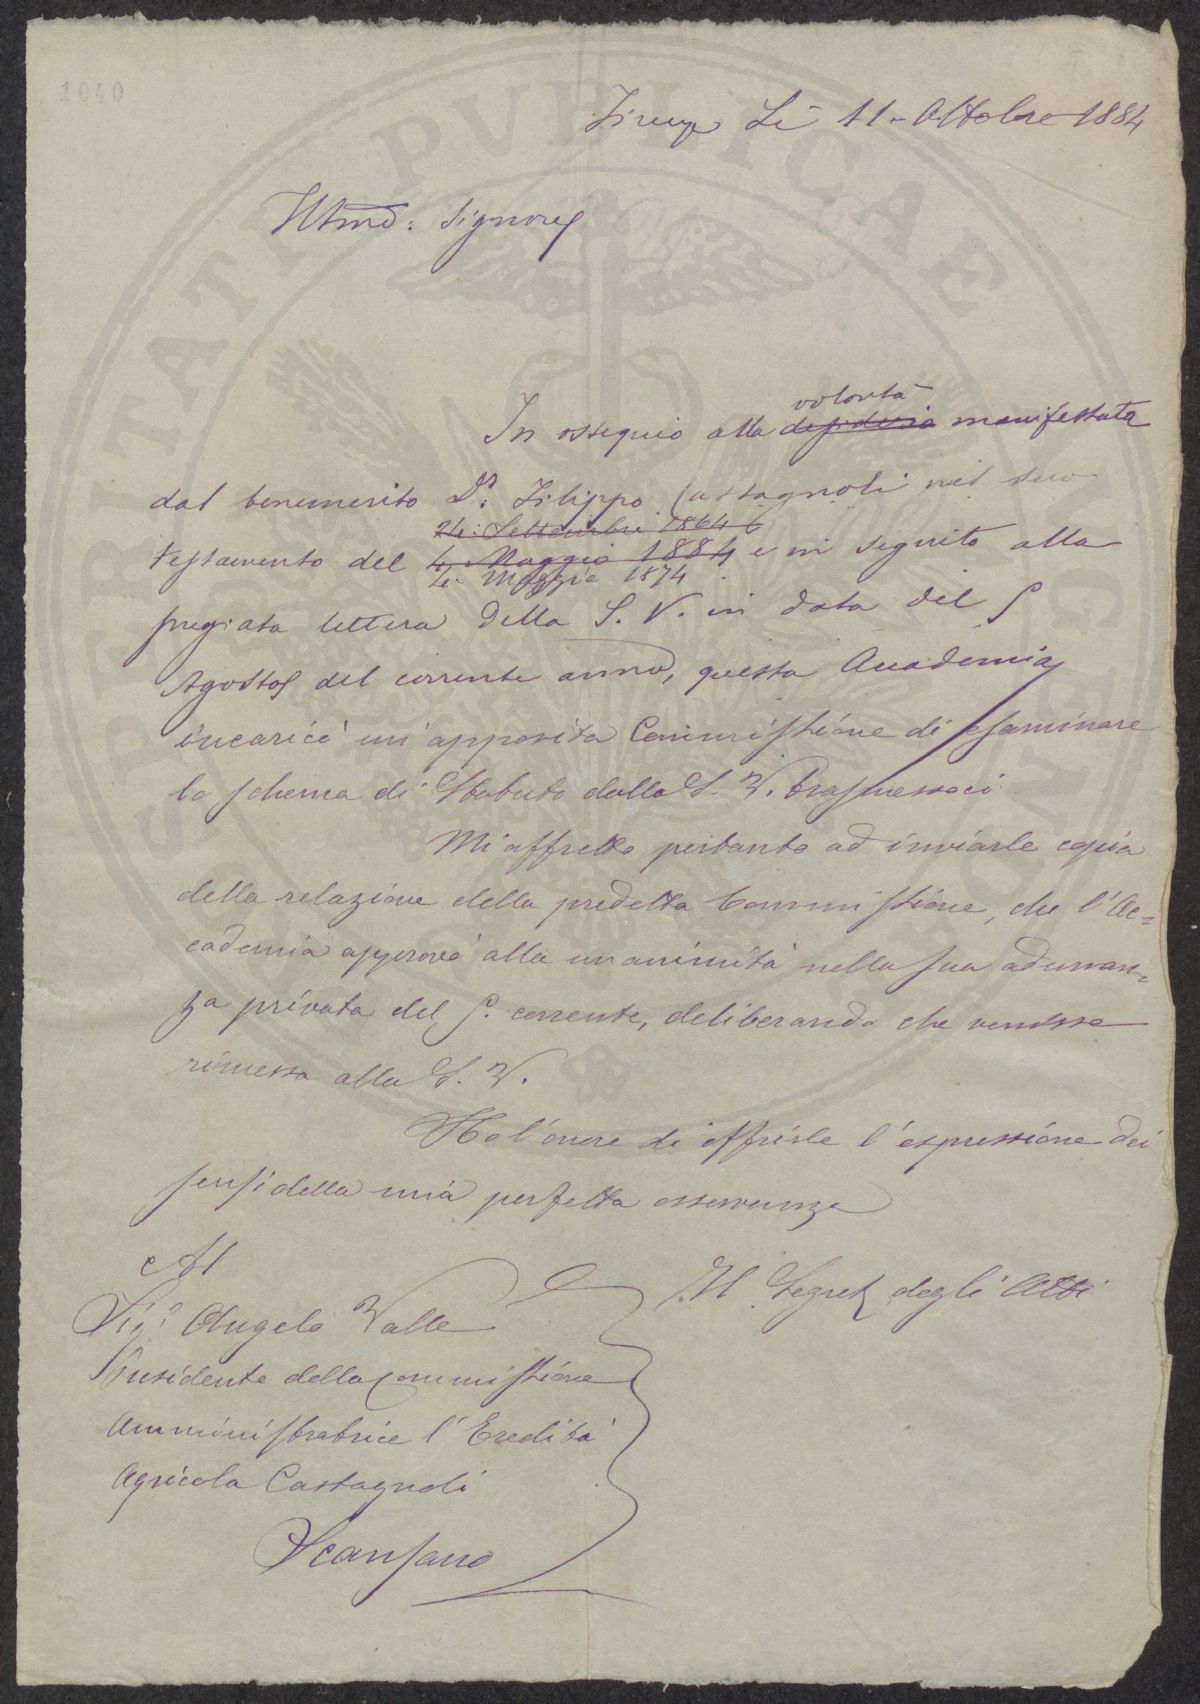 1040
Firenze Li 11. Ottobre 1884
Illmo: Signore
volontà
In ossequio alla desiderio manifestata
dal benemerito Dr. Filippo Castagnoli nel suo
24: Settembre 1864
testamento del 4. Maggio 1884 e in seguito alla
4. Maggio 1874
pregiata lettera della S. V. in data del
Agosto del corrente anno, questa Accademia
incaricò un'apposita Commissione di esaminare
lo schema di Statuto dalla S. V. trasmessoci
Mi affretto pertanto ad inviarle copia
della relazione della predetta Commissione, che l'Ac=
cademia approvò alla unanimità nella sua adunan=
za privata del corrente, deliberando che venisse
rimessa alla S. V.
Ho l'onore di offrirle l'espressione dei
sensi della mia perfetta osservanza
Al
Sigr Angelo Valle
Presidente della Commissione
Amministratrice l'Eredità
Agricola Castagnoli
Scansano
Il Segret degli Atti